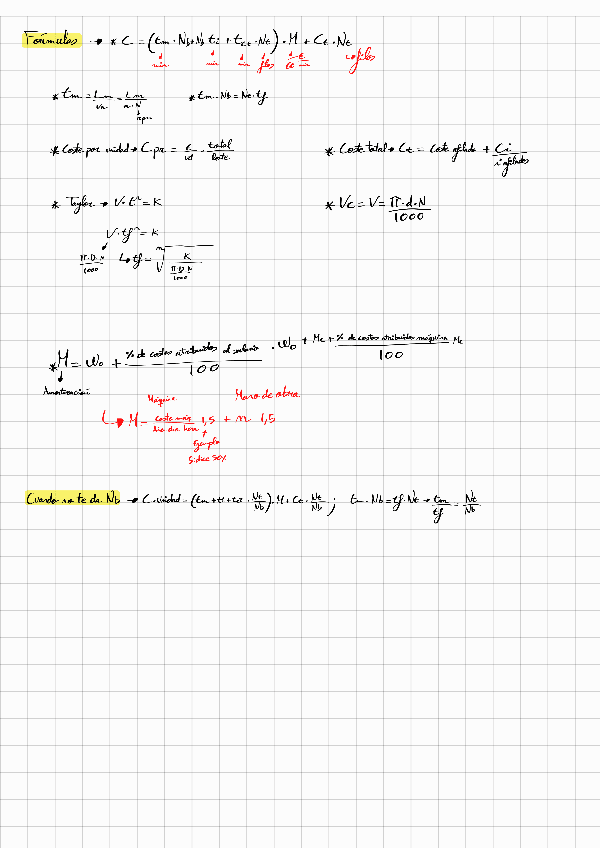 Fórmulas → * C = (tm · Nb + Nb · ti + tct · Nt) · M + Ct · Nt
min min min filos
* tm = Lm/Va = Lm/a·N
* tm · Nb = Nt · tf
* Coste por unidad → C pu = C/ud total/lote
* Coste total → Ct = Coste afilado + Ci/i afilados
* Taylor → V · t^n = K
* Vc = V = π·d·N/1000
V · tf^n = K
π·D·N/1000 ↳ tf = ⁿ√(K / (π·D·N/1000))
* M = Wo + % de costes atribuidos al salario/100 · Wo + Mt + % de costes atribuidos máquina/100 Mt
Amortización
Máquina Mano de obra
↳ M = 1,5 + n 1,5
Ejemplo
si dice 50%
Cuando no te da Nb → C unidad = (tm + ti + tct · Nt/Nb) · M + Ct · Nt/Nb ; tm · Nb = tf · Nt → tm/tf = Nt/Nb